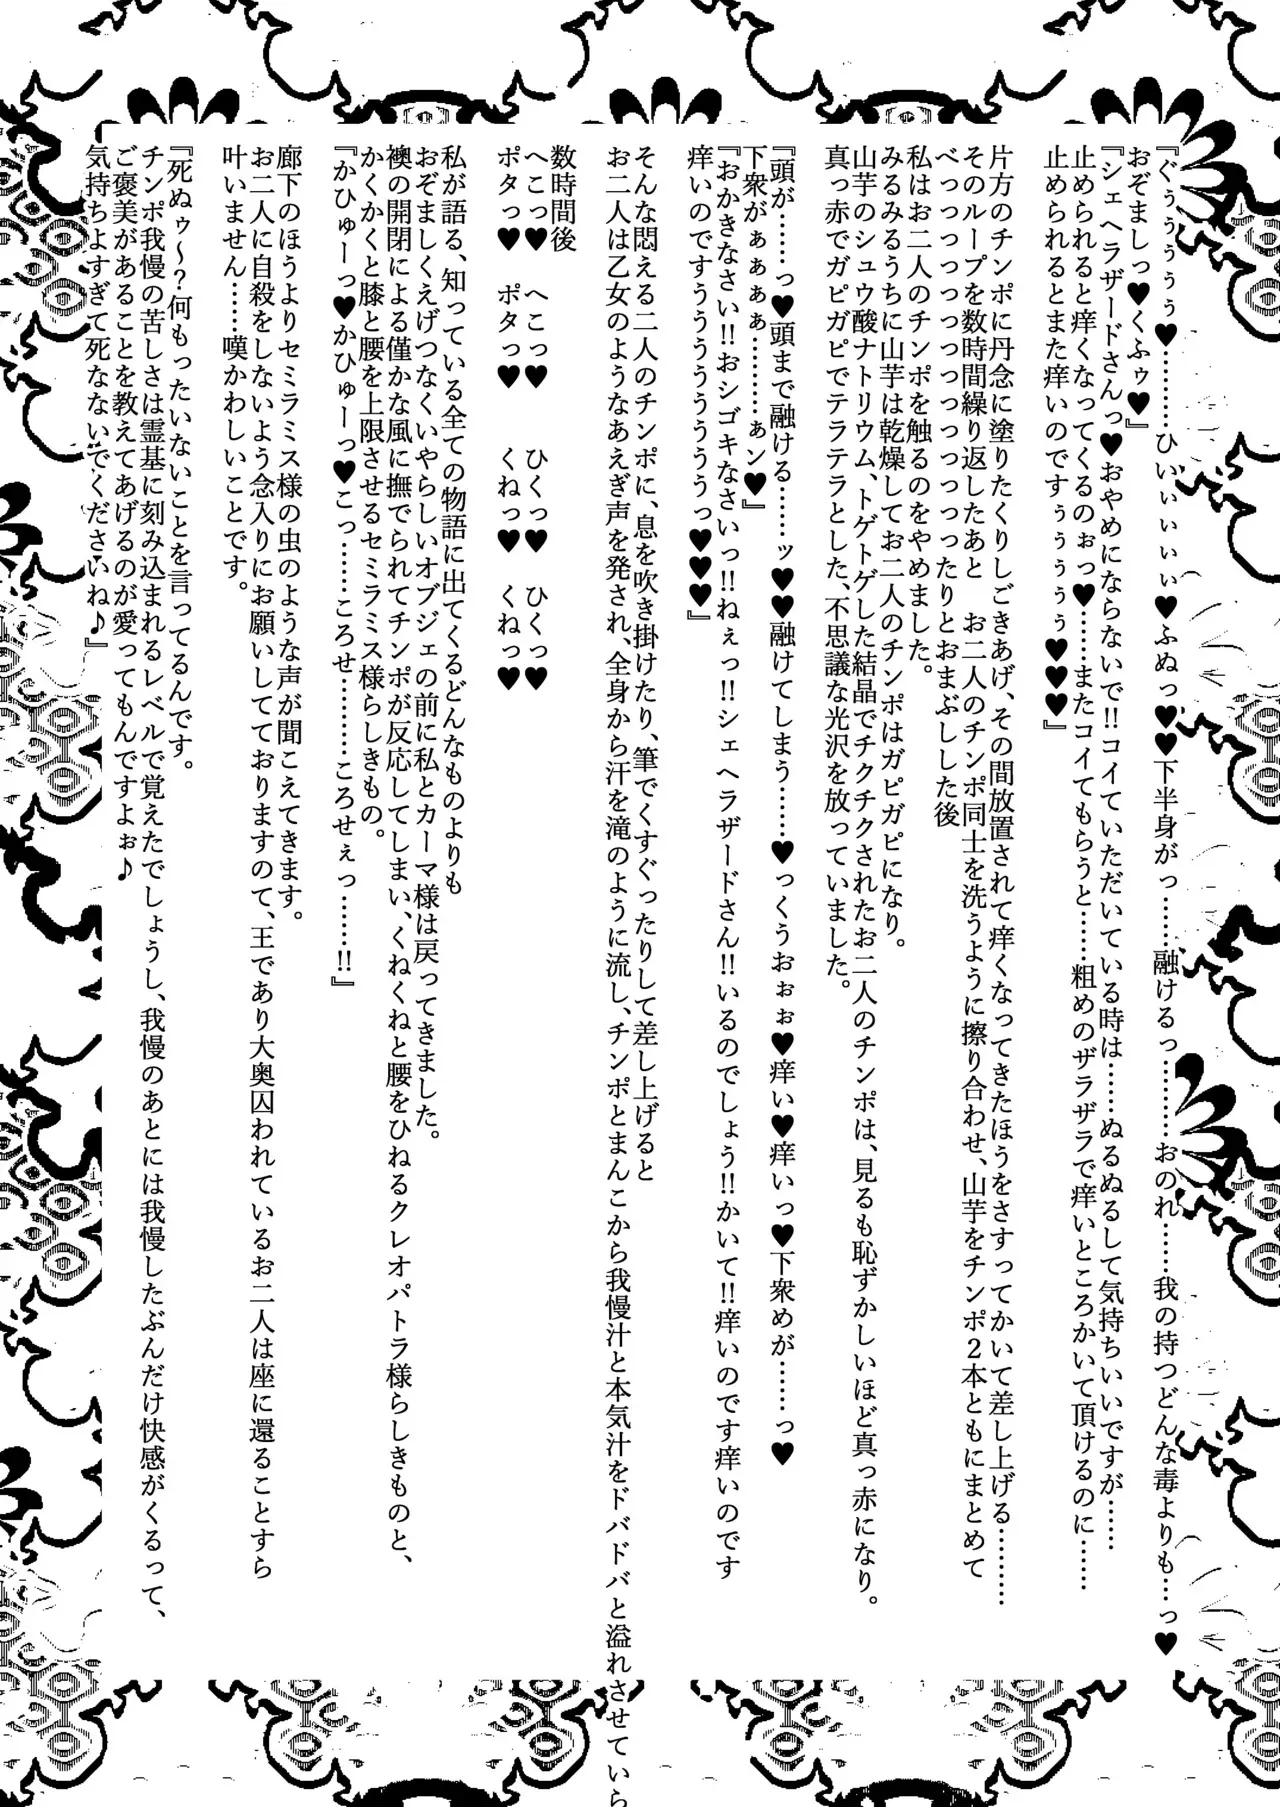 『ぐぅぅぅぅぅ♥………ひいぃぃぃぃ♥ふぬっ♥♥下半身がっ……融けるっ…………おのれ……我の持つどんな毒よりも…っ♥
おぞましっ♥くふゥ♥』
『シェヘラザードさんっ♥おやめにならないで!!コイていただいている時は……ぬるぬるして気持ちいいですが……
止められると痒くなってくるのぉっ♥……またコイてもらうと……粗めのザラザラで痒いところかいて頂けるのに……
止められるとまた痒いのですぅぅぅぅぅ♥♥♥』
片方のチンポに丹念に塗りたくりしごきあげ、その間放置されて痒くなってきたほうをさすってかいて差し上げる………
そのループを数時間繰り返したあと　お二人のチンポ同士を洗うように擦り合わせ、山芋をチンポ２本ともにまとめて
べっっっっっっっっっっっっっったりとおまぶしした後
私はお二人のチンポを触るのをやめました。
みるみるうちに山芋は乾燥してお二人のチンポはガピガピになり。
山芋のシュウ酸ナトリウム、トゲトゲした結晶でチクチクされたお二人のチンポは、見るも恥ずかしいほど真っ赤になり。
真っ赤でガピガピでテラテラとした、不思議な光沢を放っていました。
『頭が……っ♥頭まで融ける……ッ♥♥融けてしまう……♥っくうおぉぉ♥痒い♥痒いっ♥下衆めが……っ♥
下衆がぁぁぁぁ………ぁン♥』
『おかきなさい!!おシゴキなさいっ!!ねぇっ!!シェヘラザードさん!!いるのでしょう!!かいて!!痒いのです痒いのです
痒いのですうううううううっ♥♥♥』
そんな悶える二人のチンポに、息を吹き掛けたり、筆でくすぐったりして差し上げると
お二人は乙女のようなあえぎ声を発され、全身から汗を滝のように流し、チンポとまんこから我慢汁と本気汁をドバドバと溢れさせていら
数時間後
へこっ♥　へこっ♥　　ひくっ♥　ひくっ♥
ポタっ♥　ポタっ♥　　くねっ♥　くねっ♥
私が語る、知っている全ての物語に出てくるどんなものよりも
おぞましくえげつなくいやらしいオブジェの前に私とカーマ様は戻ってきました。
襖の開閉による僅かな風に撫でられてチンポが反応してしまい、くねくねと腰をひねるクレオパトラ様らしきものと、
かくかくと膝と腰を上限させるセミラミス様らしきもの。
『かひゅーっ♥かひゅーっ♥こっ……ころせ………ころせぇっ……!!』
廊下のほうよりセミラミス様の虫のような声が聞こえてきます。
お二人に自殺をしないよう念入りにお願いしてておりますのて、王であり大奥囚われているお二人は座に還ることすら
叶いません……嘆かわしいことです。
『死ぬゥ〜?何もったいないことを言ってるんです。
チンポ我慢の苦しさは霊基に刻み込まれるレベルで覚えたでしょうし、我慢のあとには我慢したぶんだけ快感がくるって、
ご褒美があることを教えてあげるのが愛ってもんですよぉ♪
気持ちよすぎて死なないでくださいね♪』